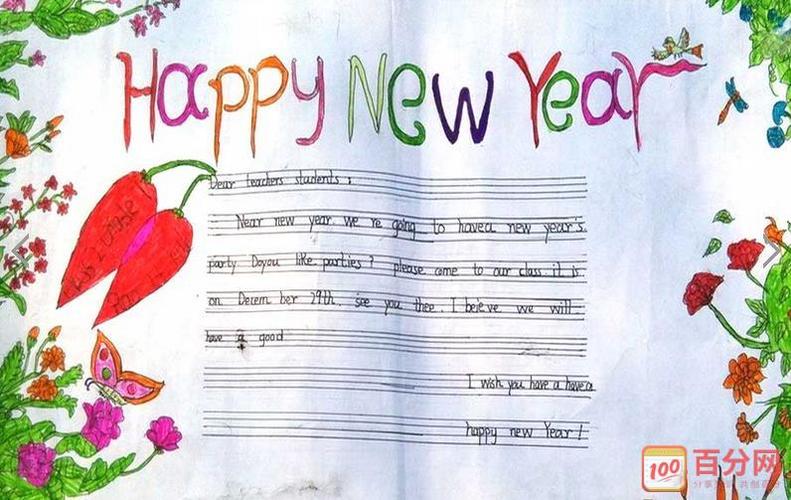 Happy New Year
Dear teachers students :
Near new year. we re going to havea new year's
party Doyou like parties? please come to our class. it is
on Decem ber 29th. see you thee. I beieve we will
have a good
I wish you have a havea
happy new Year!
100 百分网